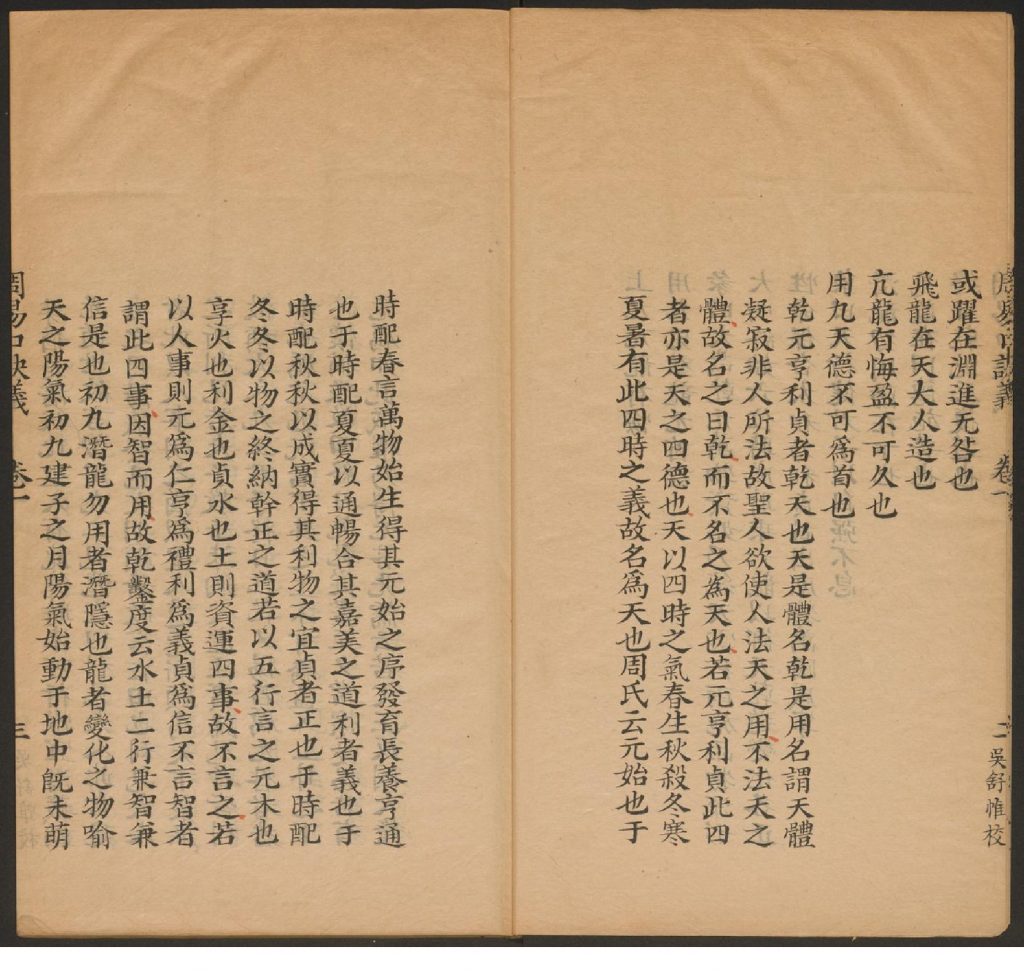 周易口訣義 卷一 二 吳舒惟校
或躍在淵進无咎也
飛龍在天大人造也
亢龍有悔盈不可久也
用九天德不可爲首也
乾元亨利貞者乾天也天是體名乾是用名謂天體
疑寂非人所法故聖人欲使人法天之用不法天之
體故名之曰乾而不名之為天也若元亨利貞此四
者亦是天之四德也天以四時之氣春生秋殺冬寒
夏暑有此四時之義故名爲天也周氏云元始也于
時配春言萬物始生得其元始之序發育長養亨通
也于時配夏夏以通暢合其嘉美之道利者義也于
時配秋秋以成實得其利物之宜貞者正也于時配
冬冬以物之終納幹正之道若以五行言之元木也
亨火也利金也貞水也土則資運四事故不言之若
以人事則元爲仁亨爲禮利爲義貞爲信不言智者
謂此四事因智而用故乾鑿度云水土二行兼智兼
信是也初九潛龍勿用者潛隱也龍者變化之物喻
天之陽氣初九建子之月陽氣始動于地中旣未萌
周易口訣義 卷一 三